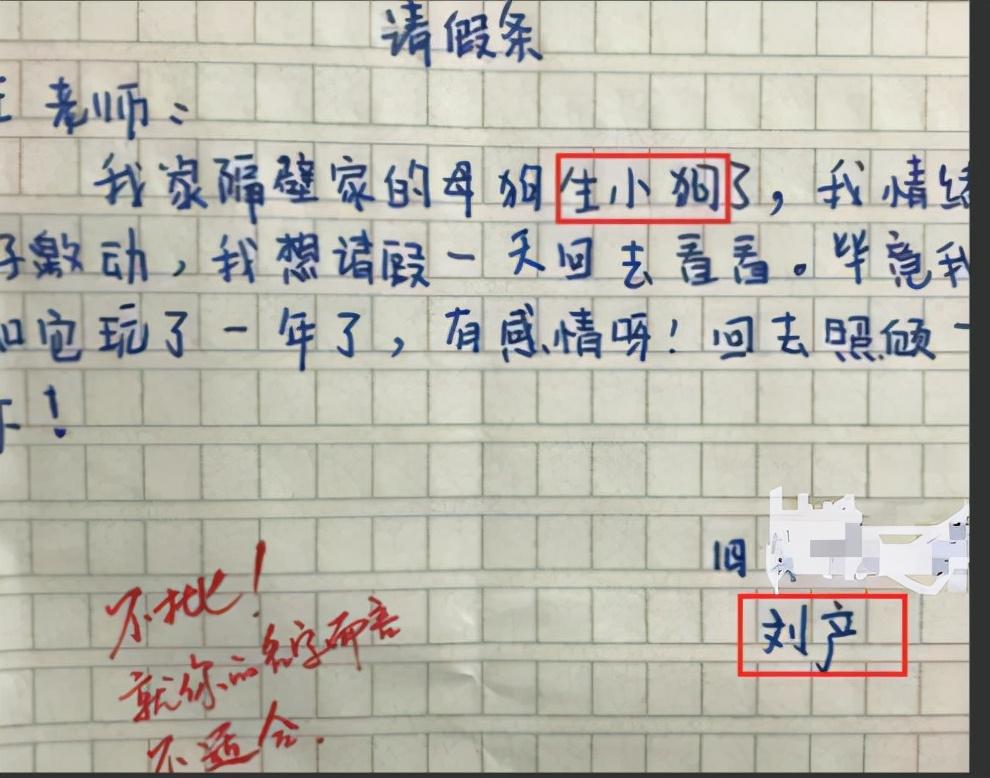 请假条
老师：
我家隔壁家的母狗生小狗了，我情绪
激动，我想请假一天回去看看。毕竟我
和它玩了一年了，有感情呀！回去照顾一
下！
旧
刘产
不批！
就你的名字而言
不适合.